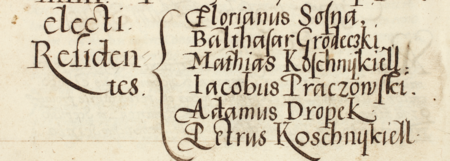 electi
Residen-
tes.
Florianus Sosna.
Balthasar Grodeczki
Mathias Koschnykiell:
Iacobus Praczowski.
Adamus Dropek
Petrus Koschnykiell